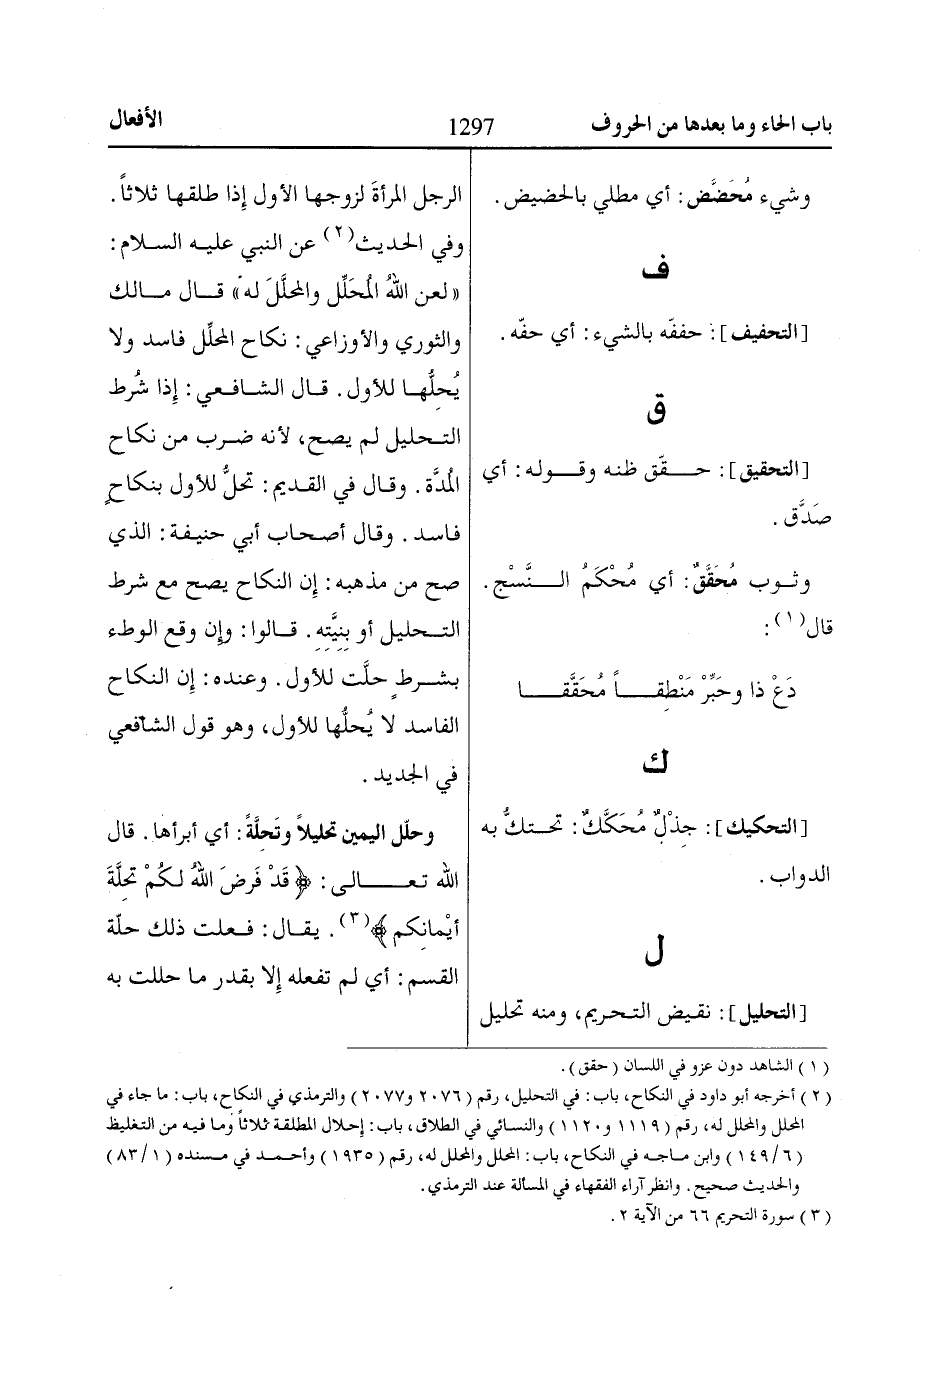 باب الحاء وما بعدها من الحروف
1297
الأفعال
وشيء مُحَضَّض: أي مطلي بالحضيض.
ف
[التحفيف]: حففه بالشيء: أي حفّه.
ق
[التحقيق]: حـقّق ظنه وقـوله: أي
صَدَّق.
وثوب مُحَقَّقٌ: أي مُحْكَمُ النَّسْج.
قال(١):
دَعْ ذا وحَبِّرْ مَنْطِقـاً مُحَقَّقـا
ك
[التحكيك]: جِذْلٌ مُحَكَّكٌ: تحتكُّ به
الدواب.
ل
[التحليل]: نقيض التحريم، ومنه تحليل
الرجل المرأةَ لزوجها الأول إذا طلقها ثلاثاً.
وفي الحديث(٢) عن النبي عليه السلام:
«لعن اللهُ المُحَلِّل والمحلَّلَ له» قال مالك
والثوري والأوزاعي: نكاح المحلِّل فاسد ولا
يُحلُّها للأول. قال الشافعي: إذا شُرط
التحليل لم يصح، لأنه ضرب من نكاح
المُدَّة. وقال في القديم: تحلُّ للأول بنكاحٍ
فاسد. وقال أصحاب أبي حنيفة: الذي
صح من مذهبه: إن النكاح يصح مع شرط
التحليل أو بِنِيَّتِهِ. قالوا: وإن وقع الوطء
بشرطٍ حلَّت للأول. وعنده: إن النكاح
الفاسد لا يُحلُّها للأول، وهو قول الشافعي
في الجديد.
وحلّل اليمين تحليلاً وتَحلَّةً: أي أبرأها. قال
الله تعالى: ﴿قَدْ فَرضَ اللهُ لكُمْ تحلَّةَ
أيْمانكم﴾(٣). يقال: فعلت ذلك حلّة
القسم: أي لم تفعله إلا بقدر ما حللت به
(١) الشاهد دون عزو في اللسان (حقق).
(٢) أخرجه أبو داود في النكاح، باب: في التحليل، رقم (٢٠٧٦ و٢٠٧٧) والترمذي في النكاح، باب: ما جاء في
المحلل والمحلل له، رقم (١١١٩ و١١٢٠) والنسائي في الطلاق، باب: إحلال المطلقة ثلاثاً وما فيه من التغليظ
(٦/١٤٩) وابن ماجه في النكاح، باب: المحلل والمحلل له، رقم (١٩٣٥) وأحمد في مسنده (١/٨٣)
والحديث صحيح. وانظر آراء الفقهاء في المسألة عند الترمذي.
(٣) سورة التحريم ٦٦ من الآية ٢.